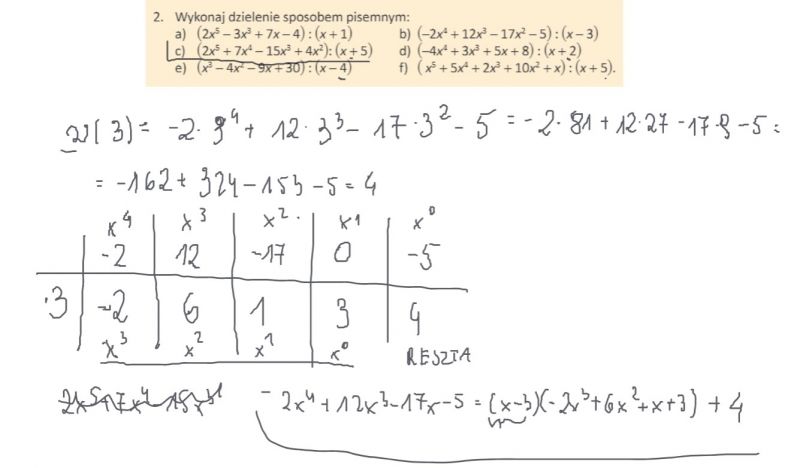 2. Wykonaj dzielenie sposobem pisemnym:
a) (2x⁵ − 3x³ + 7x − 4) : (x + 1) b) (−2x⁴ + 12x³ − 17x² − 5) : (x − 3)
c) (2x⁵ + 7x⁴ − 15x³ + 4x²): (x + 5) d) (−4x⁴ + 3x³ + 5x + 8) : (x + 2)
e) (x³ − 4x² − 9x + 30) : (x − 4) f) ( x⁵ + 5x⁴ + 2x³ + 10x² + x) : (x + 5).
w(3) = -2·3⁴ + 12·3³ - 17·3² - 5 = -2·81 + 12·27 - 17·9 - 5 =
= -162 + 324 - 153 - 5 = 4
x⁴ x³ x² x¹ x⁰
-2 12 -17 0 -5
3 -2 6 1 3 4
x³ x² x¹ x⁰ RESZTA
-2x⁴ + 12x³ - 17x - 5 = (x-3)(-2x³ + 6x² + x + 3) + 4